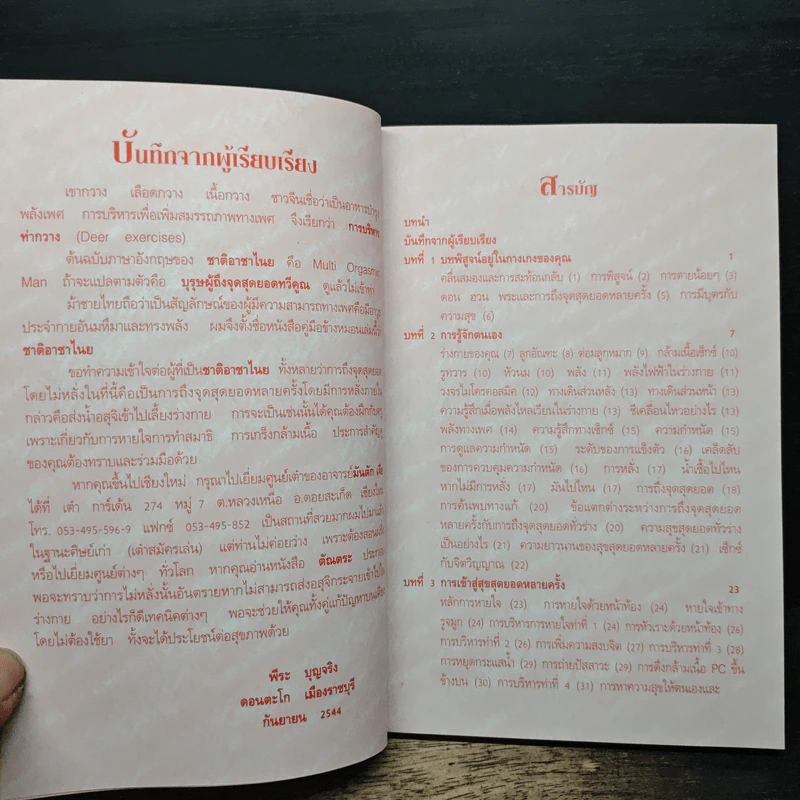 บันทึกจากผู้เรียบเรียง
เขากวาง เลือดกวาง เนื้อกวาง ชาวจีนเชื่อว่าเป็นอาหารบำรุง
พลังเพศ การบริหารเพื่อเพิ่มสมรรถภาพทางเพศ จึงเรียกว่า การบริหาร
ท่ากวาง (Deer exercises)
ต้นฉบับภาษาอังกฤษของ ชาติอาชาไนย คือ Multi Orgasmic
Man ถ้าจะแปลตามตัวคือ บุรุษผู้ถึงจุดสุดยอดทวีคูณ ดูแล้วไม่เข้าท่า
ม้าชายไทยถือว่าเป็นสัญลักษณ์ของผู้มีความสามารถทางเพศคือมีอาวุธ
ประจำกายอันมหึมาและทรงพลัง ผมจึงตั้งชื่อหนังสือคู่มือข้างหมอนเล่มนี้ว่า
ชาติอาชาไนย
ขอทำความเข้าใจต่อผู้ที่เป็นชาติอาชาไนย ทั้งหลายว่าการถึงจุดสุดยอด
โดยไม่หลั่งในที่นี้คือเป็นการถึงจุดสุดยอดหลายครั้งโดยมีการหลั่งภายใน
กล่าวคือส่งน้ำอสุจิเข้าไปเลี้ยงร่างกาย การจะเป็นเช่นนั้นได้คุณต้องฝึกกันๆ
เพราะเกี่ยวกับการหายใจการทำสมาธิ การเกร็งกล้ามเนื้อ ประการสำคัญคู่
ของคุณต้องทราบและร่วมมือด้วย
หากคุณขึ้นไปเชียงใหม่ กรุณาไปเยี่ยมศูนย์เต๋าของอาจารย์มันตัก เจีย
ได้ที่ เต๋า การ์เด้น 274 หมู่ 7 ต.หลวงเหนือ อ.ดอยสะเก็ด เชียงใหม่
โทร. 053-495-596-9 แฟกซ์ 053-495-852 เป็นสถานที่สวยมากผมไปมาแล้ว
ในฐานะศิษย์เก่า (เต๋าสมัครเล่น) แต่ท่านไม่ค่อยว่าง เพราะต้องสอนเต๋า
หรือไปเยี่ยมศูนย์ต่างๆ ทั่วโลก หากคุณอ่านหนังสือ ตัณตระ ประกอบ
พอจะทราบว่าการไม่หลั่งนั้นอันตรายหากไม่สามารถส่งอสุจิกระจายเข้าไปใน
ร่างกาย อย่างไรก็ดีเทคนิคต่างๆ พอจะช่วยให้คุณทั้งคู่แก้ปัญหาบนเตียง
โดยไม่ต้องใช้ยา ทั้งจะได้ประโยชน์ต่อสุขภาพด้วย
พีระ บุญจริง
ดอนตะโก เมืองราชบุรี
กันยายน 2544
สารบัญ
บทนำ
บันทึกจากผู้เรียบเรียง
บทที่ 1 บทพิสูจน์อยู่ในกางเกงของคุณ 1
คลื่นสมองและการสะท้อนกลับ (1) การพิสูจน์ (2) การตายน้อยๆ (3)
ดอน ฮวน พระและการถึงจุดสุดยอดหลายครั้ง (5) การมีบุตรกับ
ความสุข (6)
บทที่ 2 การรู้จักตนเอง 7
ร่างกายของคุณ (7) ลูกอัณฑะ (8) ต่อมลูกหมาก (9) กล้ามเนื้อเซ็กซ์ (10)
รูทวาร (10) หัวนม (10) พลัง (11) พลังไฟฟ้าในร่างกาย (11)
วงจรไมโครคอสมิค (12) ทางเดินส่วนหลัง (12) ทางเดินส่วนหน้า (13)
ความรู้สึกเมื่อพลังไหลเวียนในร่างกาย (13) ชี่เคลื่อนไหวอย่างไร (13)
พลังทางเพศ (14) ความรู้สึกทางเซ็กซ์ (15) ความกำหนัด (15)
การดูแลความกำหนัด (15) ระดับของการแข็งตัว (16) เคล็ดลับ
ของการควบคุมความกำหนัด (16) การหลั่ง (17) น้ำเชื้อไปไหน
หากไม่มีการหลั่ง (17) มันไปไหน (17) การถึงจุดสุดยอด (18)
การค้นพบทางแก้ (20) ข้อแตกต่างระหว่างการถึงจุดสุดยอด
หลายครั้งกับการถึงจุดสุดยอดทั่วร่าง (20) ความสุขสุดยอดทั่วร่าง
เป็นอย่างไร (21) ความยาวนานของสุขสุดยอดหลายครั้ง (21) เซ็กซ์
กับจิตวิญญาณ (22)
บทที่ 3 การเข้าสู่สุขสุดยอดหลายครั้ง 23
หลักการหายใจ (23) การหายใจด้วยหน้าท้อง (24) หายใจเข้าทาง
รูจมูก (24) การบริหารการหายใจท่าที่ 1 (24) การหัวเราะด้วยหน้าท้อง (26)
การบริหารท่าที่ 2 (26) การเพิ่มความสงบจิต (27) การบริหารท่าที่ 3 (28)
การหยุดกระแสน้ำ (29) การถ่ายปัสสาวะ (29) การดึงกล้ามเนื้อ PC ขึ้น
ข้างบน (30) การบริหารท่าที่ 4 (31) การหาความสุขให้ตนเองและ